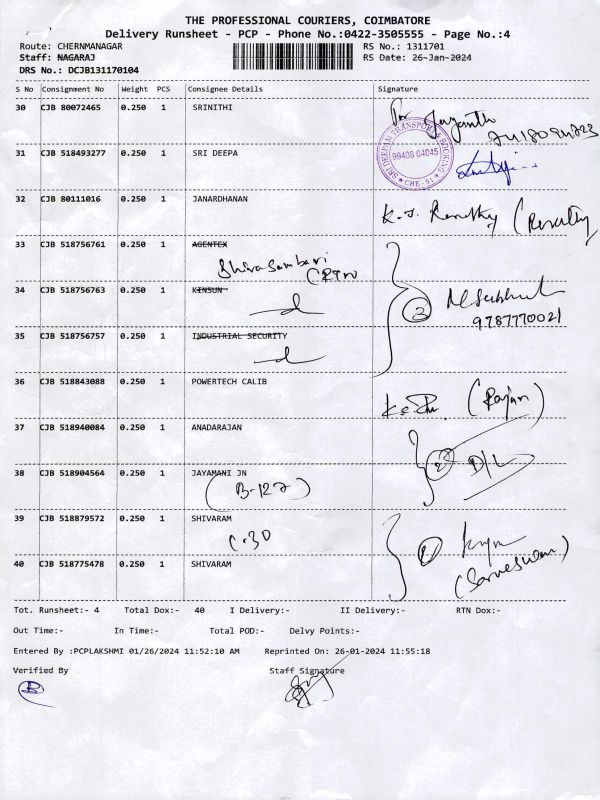 THE PROFESSIONAL COURIERS, COIMBATORE
Delivery Runsheet - PCP - Phone No.:0422-3505555 - Page No.:4
Route: CHERNMANAGAR RS No.: 1311701
Staff: NAGARAJ RS Date: 26-Jan-2024
DRS No.: DCJB131170104
S No Consignment No Weight PCS Consignee Details Signature
30 CJB 80072465 0.250 1 SRINITHI
31 CJB 518493277 0.250 1 SRI DEEPA
SRI DEEDAM TRANSPORT & BOOKING
99406 04045
CBE - 51
32 CJB 80111016 0.250 1 JANARDHANAN
33 CJB 518756761 0.250 1 AGENTEX
34 CJB 518756763 0.250 1 KINSUN
3
9787770021
35 CJB 518756757 0.250 1 INDUSTRIAL SECURITY
36 CJB 518843088 0.250 1 POWERTECH CALIB
(Rajan)
37 CJB 518940084 0.250 1 ANADARAJAN
2 D/L
38 CJB 518904564 0.250 1 JAYAMANI JN
(B-127)
39 CJB 518879572 0.250 1 SHIVARAM
C-30
40 CJB 518775478 0.250 1 SHIVARAM
Tot. Runsheet:- 4 Total Dox:- 40 I Delivery:- II Delivery:- RTN Dox:-
Out Time:- In Time:- Total POD:- Delvy Points:-
Entered By :PCPLAKSHMI 01/26/2024 11:52:10 AM Reprinted On: 26-01-2024 11:55:18
Verified By Staff Signature